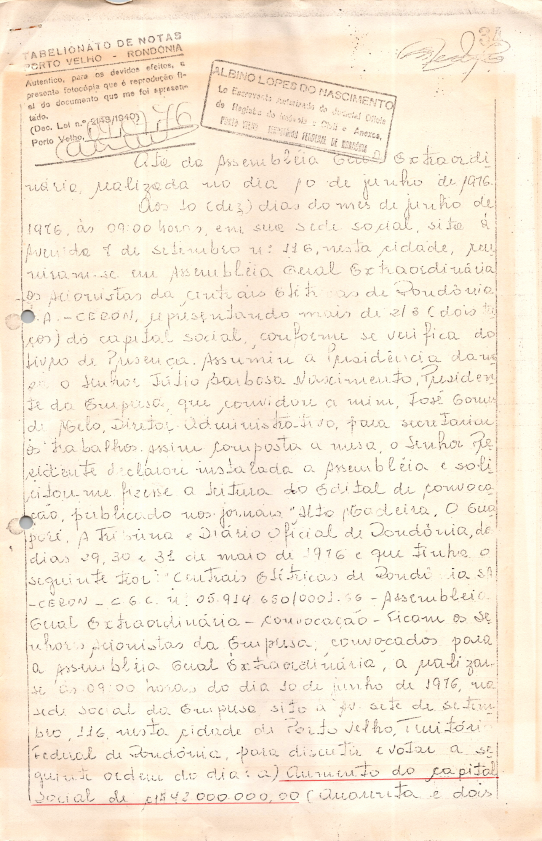 34
TABELIONATO DE NOTAS
PORTO VELHO - RONDÔNIA
Autentico, para os devidos efeitos, a
presente fotocópia que é reprodução fi-
el do documento que me foi apresen-
tado.
(Dec. Lei n.º 2148/1940)
Porto Velho,
ALBINO LOPES DO NASCIMENTO
Ata da Assembléia Geral Extraordi
nária, realizada no dia 10 de junho de 1976.
Aos 10 (dez) dias do mês de junho de
1976, às 09:00 horas, em sua sede social, sita à
Avenida 7 de setembro nº 116, nesta cidade, reu
niram-se em Assembléia Geral Extraordinária
os Acionistas da Centrais Elétricas de Rondônia
S.A.-CERON, representando mais de 2/3 (dois ter
ços) do capital social, conforme se verifica do
Livro de Presença. Assumiu a Presidência da me
sa o Senhor Júlio Barbosa Nascimento, Presiden
te da Empresa, que convidou a mim, José Gomes
de Melo, Diretor Administrativo, para secretariar
os trabalhos. Assim composta a mesa, o Senhor Pre
sidente declarou instalada a Assembléia e soli
citou-me fizesse a leitura do Edital de convoca
ção, publicado nos jornais "Alto Madeira, O Gua
poré, A Tribuna e Diário Oficial de Rondônia, de
dias 29, 30 e 31 de maio de 1976 e que tinha o
seguinte teor: Centrais Elétricas de Rondônia SA
-CERON - C.G.C. nº 05.914.650/0001.66 - Assembléia
Geral Extraordinária - convocação - Ficam os Se
nhores Acionistas da Empresa, convocados para
a Assembléia Geral Extraordinária, a realizar-
se às 09:00 horas do dia 10 de junho de 1976, na
sede social da Empresa sito à Av. sete de setem
bro, 116, nesta cidade de Porto Velho, Território
Federal de Rondônia, para discutir e votar a se
guinte ordem do dia: a) Aumento do capital
social de Cr$42.000.000,00 (Quarenta e dois